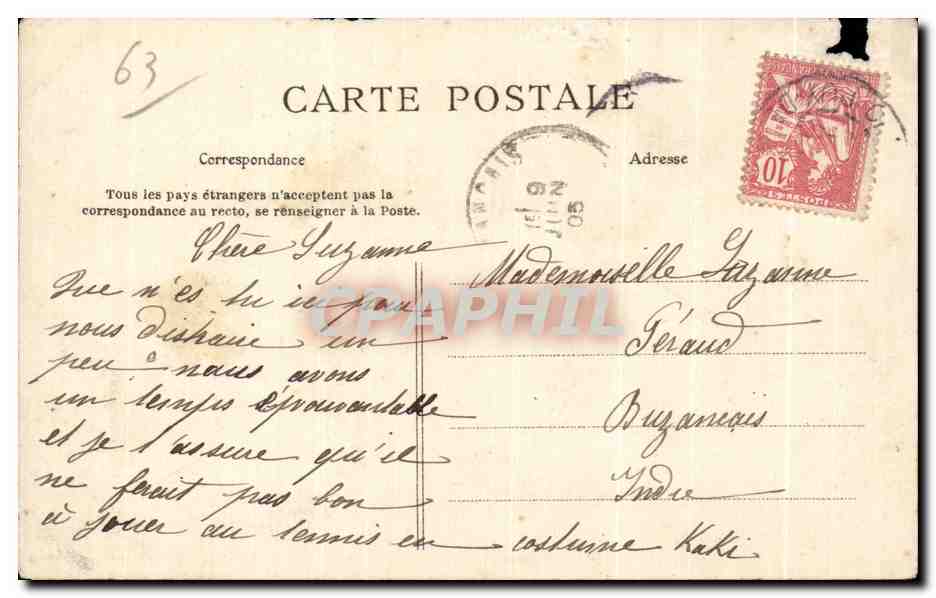 63
CARTE POSTALE
Correspondance
Adresse
Tous les pays étrangers n'acceptent pas la
correspondance au recto, se renseigner à la Poste.
9
JUIN
05
10
POSTES
Chère Suzanne
Que n'es tu ici pour
nous distraire un
peu nous avons
un temps épouvantable
et je t'assure qu'il
ne ferait pas bon
à jouer au tennis en costume Kaki
Mademoiselle Suzanne
Féraud
Buzancais
Indre
CPAPHIL